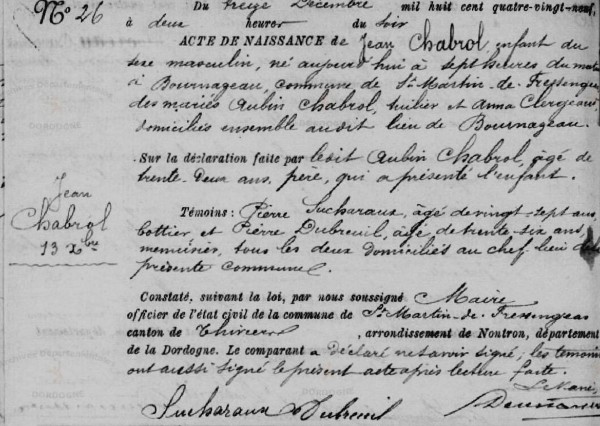 N° 26
Du treize Décembre mil huit cent quatre-vingt-neuf,
à deux heures du soir
ACTE DE NAISSANCE de Jean Chabrol, enfant du
sexe masculin, né aujourd'hui à sept heures du matin
à Bournageau, commune de St Martin-de-Fressengeas
des mariés Aubin Chabrol, huilier et Anna Clergeau
domiciliés ensemble au dit lieu de Bournageau.
Sur la déclaration faite par le dit Aubin Chabrol, âgé de
trente-deux ans, père, qui a présenté l'enfant.
Jean
Chabrol
13 Xbre
Témoins : Pierre Sucharaux, âgé de vingt-sept ans,
bottier et Pierre Dubreuil, âgé de trente-six ans,
menuisier, tous les deux domiciliés au chef-lieu de la
présente commune.
Constaté, suivant la loi, par nous soussigné Maire
officier de l'état civil de la commune de St Martin-de-Fressengeas
canton de Thiviers, arrondissement de Nontron, département
de la Dordogne. Le comparant a déclaré ne savoir signé; les témoins
ont aussi signé le présent acte après lecture faite.
Le Maire
Sucharaux Dubreuil